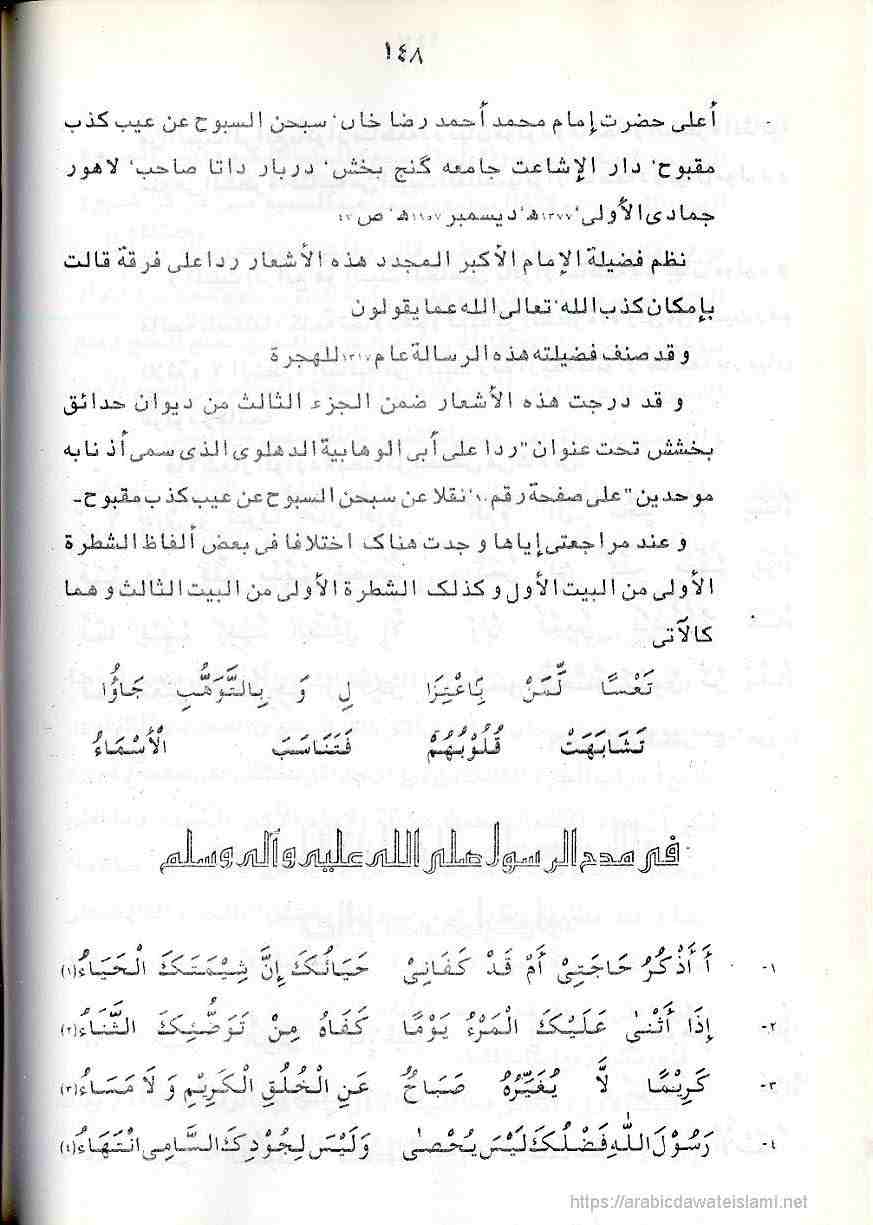 ١٤٨
- أعلى حضرت إمام محمد أحمد رضا خاں، سبحن السبوح عن عيب كذب
مقبوح، دار الإشاعت جامعه گنج بخش، دربار داتا صاحب، لاهور
جمادى الأولى، ١٣٧٧ھ، ديسمبر ١٩٥٧ھ، ص ٤٧
نظم فضيلة الإمام الأكبر المجدد هذه الأشعار ردا على فرقة قالت
بإمكان كذب الله، تعالى الله عما يقولون
و قد صنف فضيلته هذه الرسالة عام ١٣١٧ للهجرة
و قد درجت هذه الأشعار ضمن الجزء الثالث من ديوان حدائق
بخشش تحت عنوان "ردا على أبى الوهابية الدهلوى الذى سمى أذنابه
موحدين" على صفحة رقم نقلا عن سبحن السبوح عن عيب كذب مقبوح-
و عند مراجعتى إياها و جدت هناك اختلافا فى بعض ألفاظ الشطرة
الأولى من البيت الأول و كذلك الشطرة الأولى من البيت الثالث و هما
كالآتى
تَعْسًا لِّمَنْ بِاعْتِزَا لِ وَ بِالتَّوَهُّبِ جَاؤُا
تَشَابَهَتْ قُلُوْبُهُمْ فَتَنَاسَبَ الْأَسْمَاءُ
فى مدح الرسول صلى الله عليه وآله وسلم
١- أَ أَذْكُرُ حَاجَتِىْ أَمْ قَدْ كَفَانِىْ حَيَائُكَ إِنَّ شِيْمَتَكَ الْحَيَاءُ(١)
٢- إِذَا أَثْنىٰ عَلَيْكَ الْمَرْءُ يَوْمًا كَفَاهُ مِنْ تَوَضُّئِكَ الثَّنَاءُ(٢)
٣- كَرِيْمًا لَّا يُغَيِّرُهُ صَبَاحٌ عَنِ الْخُلُقِ الْكَرِيْمِ وَ لَا مَسَاءُ(٣)
٤- رَسُوْلَ اللّٰهِ فَضْلُكَ لَيْسَ يُحْصىٰ وَلَيْسَ لِجُوْدِكَ السَّامِى انْتِهَاءُ(٤)
https://arabicdawateislami.net